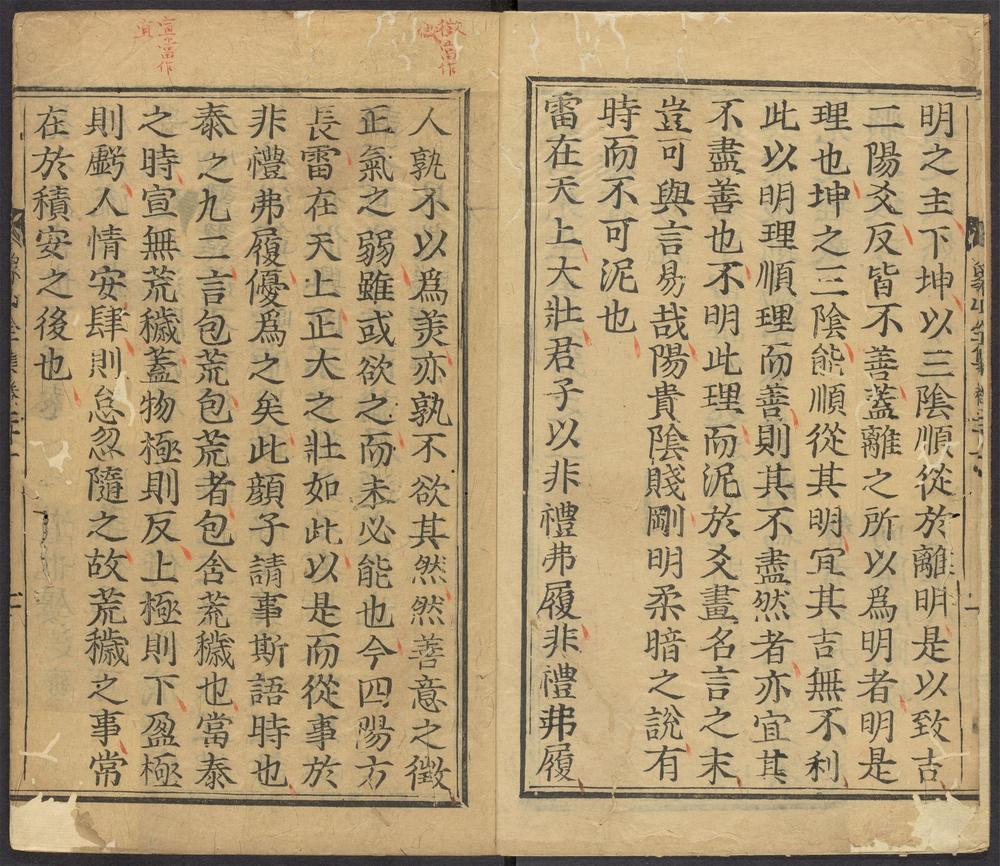 明之主下坤以三陰順從於離明是以致吉
二陽爻反皆不善蓋離之所以爲明者明是
理也坤之三陰能順從其明宜其吉無不利
此以明理順理而善則其不盡然者亦宜其
不盡善也不明此理而泥於爻畫名言之末
豈可與言易哉陽貴陰賤剛明柔暗之說有
時而不可泥也
雷在天上大壯君子以非禮弗履非禮弗履
人孰不以爲美亦孰不欲其然然善意之徵
正氣之弱雖或欲之而未必能也今四陽方
長雷在天上正大之壯如此以是而從事於
非禮弗履優爲之矣此顔子請事斯語時也
泰之九二言包荒包荒者包含荒穢也當泰
之時宣無荒穢蓋物極則反上極則下盈極
則虧人情安肆則怠忽隨之故荒穢之事常
在於積安之後也
徵當作
微
宣當作
宜